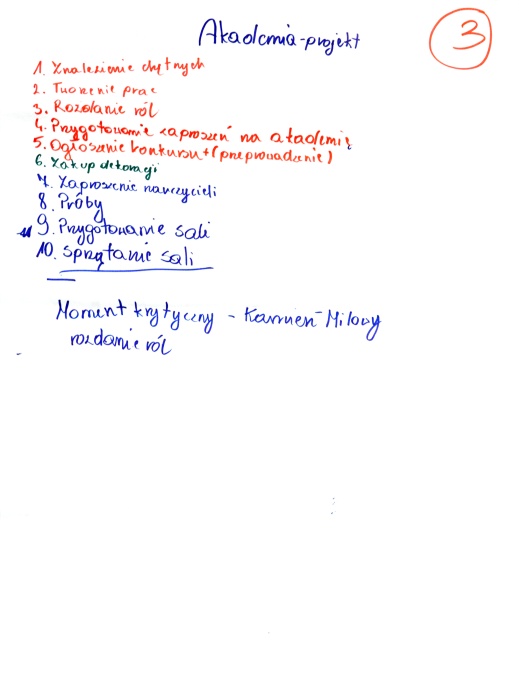 Akademia-projekt
3
1. Znalezienie chętnych
2. Tworzenie prac
3. Rozdanie ról
4. Przygotowanie zaproszeń na akademię
5. Ogłoszenie konkursu + (przeprowadzenie)
6. Zakup dekoracji
7. Zaproszenie nauczycieli
8. Próby
9. Przygotowanie sali
10. Sprzątanie sali
Moment krytyczny - Kamień Milowy
rozdanie ról